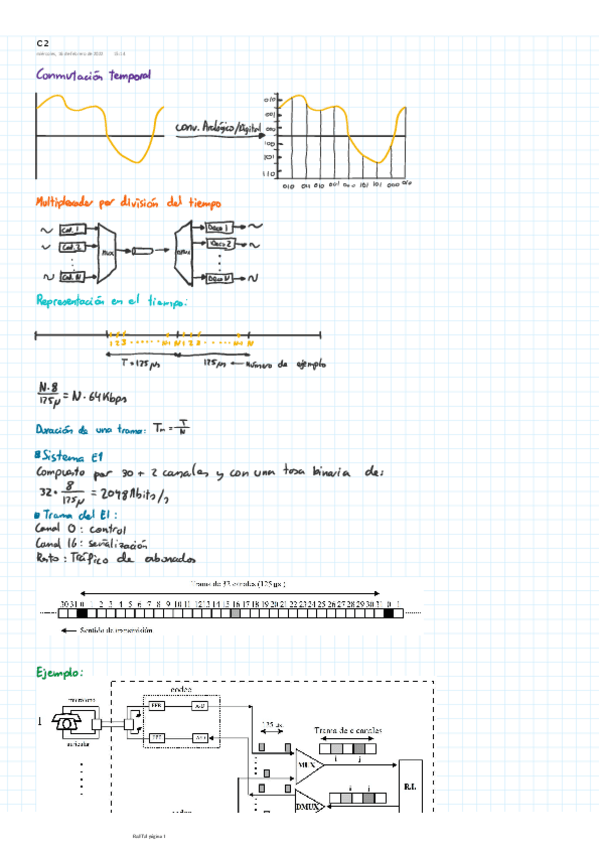 C2
Conmutación temporal
conv. Analógico/Digital
010
001
000
100
101
110
010 011 010 001 000 101 101 000 010
Multiplexador por división del tiempo
Cod. 1
Cod. 2
Cod. N
MUX
DMUX
Deco 1
Deco 2
Deco N
Representación en el tiempo:
1 2 3 ······ N-1 N 1 2 3 ······ N-1 N
T = 125 μs
125 μs ← número de ejemplo
N·8 / 125μ = N · 64 Kbps
Duración de una trama: Tm = T / N
Sistema E1
Compuesto por 30 + 2 canales y con una tasa binaria de:
32 · 8 / 125μ = 2048 kbits/s
Trama del E1:
Canal 0: control
Canal 16: señalización
Resto: Tráfico de abonados
Trama de 32 canales (125 μs)
30 31 0 1 2 3 4 5 6 7 8 9 10 11 12 13 14 15 16 17 18 19 20 21 22 23 24 25 26 27 28 29 30 31 0 1
Sentido de transmisión
Ejemplo:
codec
microfono
1
auricular
125 μs
Trama de c canales
MUX
R.I.
DMUX
codec